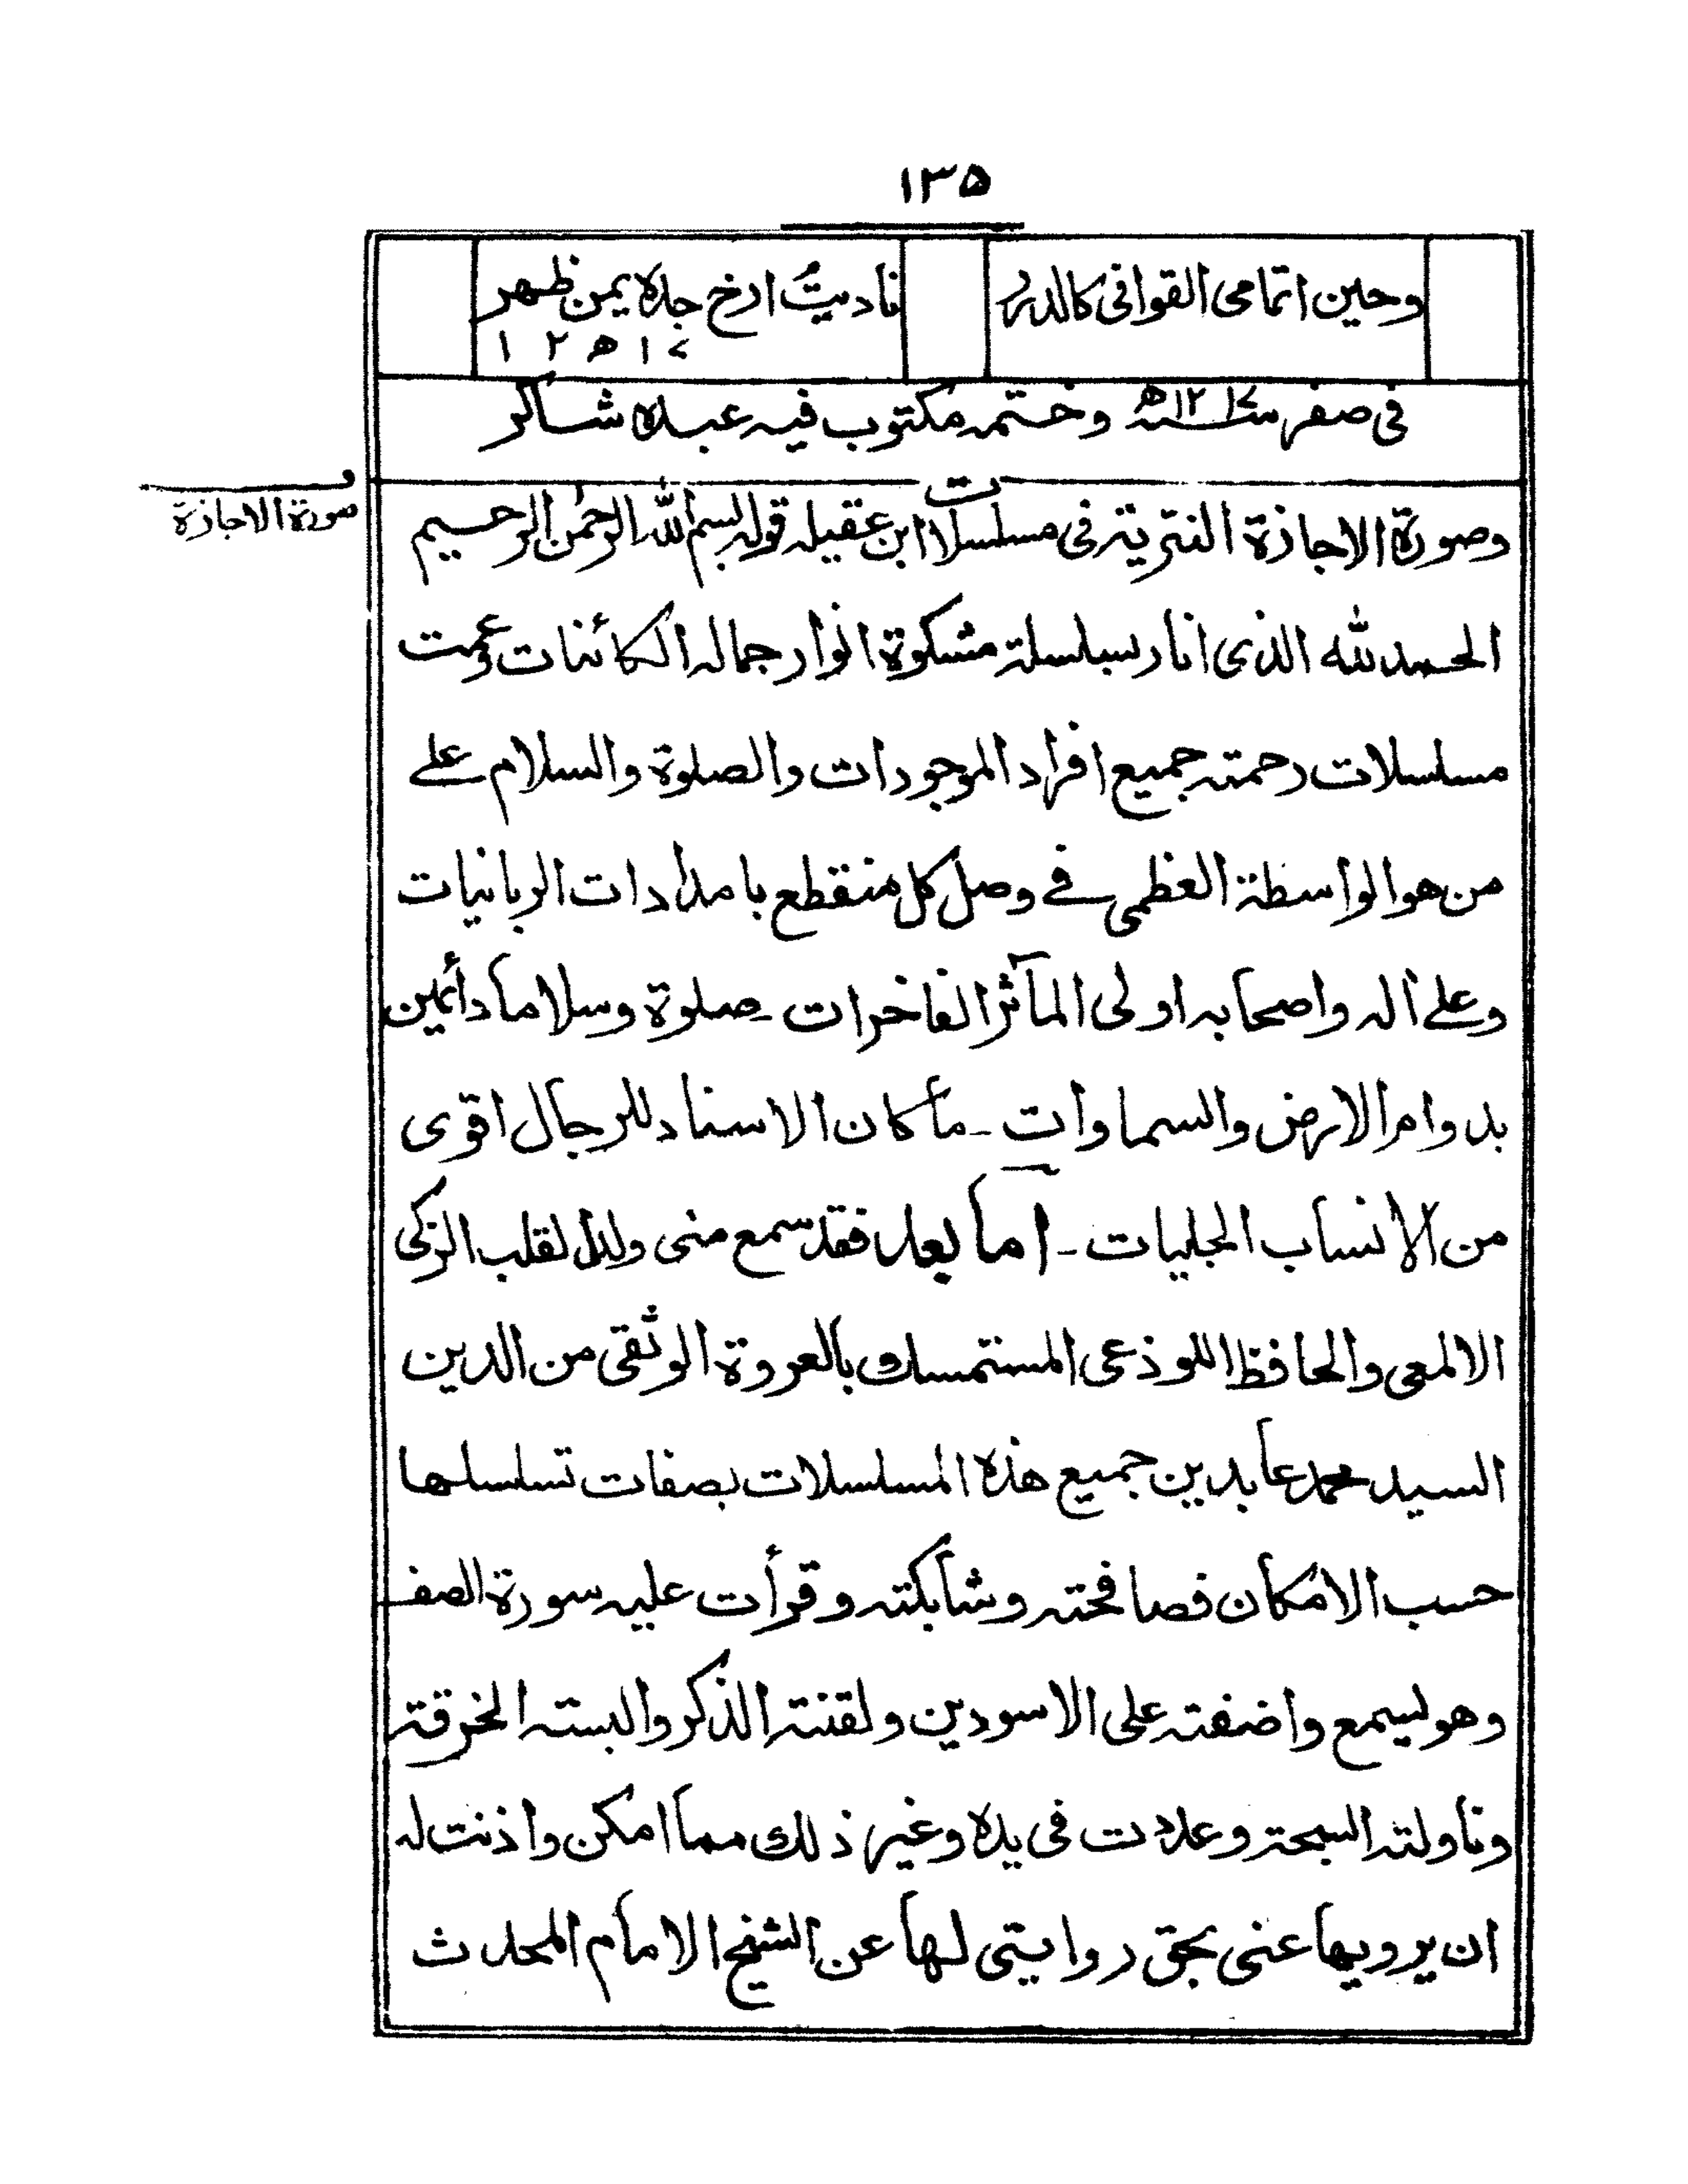 ١٣٥
وحين اتمامى القوافى كالدرر
ناديتُ ارخ جاده يمن ظهر
١٢١٧ھ
فى صفر سنة ١٢١٧ھ وختمه مكتوب فيه عبده شاكر
صورة الاجازة
وصورة الاجازة النثرية فى مسلسلات ابن عقيله قوله بسم الله الرحمن الرحيم
الحمد لله الذى انار بسلسلة مشكوة انوار جماله الكائنات وعمت
مسلسلات رحمته جميع افراد الموجودات والصلوة والسلام على
من هو الواسطة العظمى فى وصل كل منقطع بامدادات الربانيات
وعلى اله واصحابه اولى المآثر الفاخرات - صلوة وسلاما دائمين
بدوام الارض والسماوات - ما كان الاسناد للرجال اقوى
من الانساب الجليات - اما بعد فقد سمع منى ولد القلب الزكى
الالمعى والحافظ اللوذعى المستمسك بالعروة الوثقى من الدين
السيد محمد عابدين جميع هذه المسلسلات بصفات تسلسلها
حسب الامكان فصافحته وشابكته وقرأت عليه سورة الصف
وهو يسمع واضفته على الاسودين ولقنته الذكر والبسته الخرقة
وناولته السبحة وعددت فى يده وغير ذلك مما امكن واذنت له
ان يرويها عنى بحق روايتى لها عن الشيخ الامام المحدث